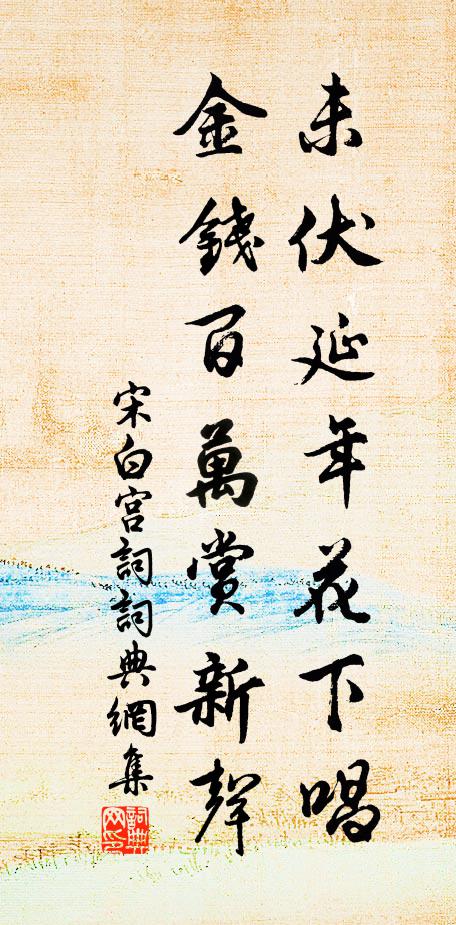 未伏延年花下唱
金錢百萬賞新聲
宋白宮詞詞典網集
詞典网印